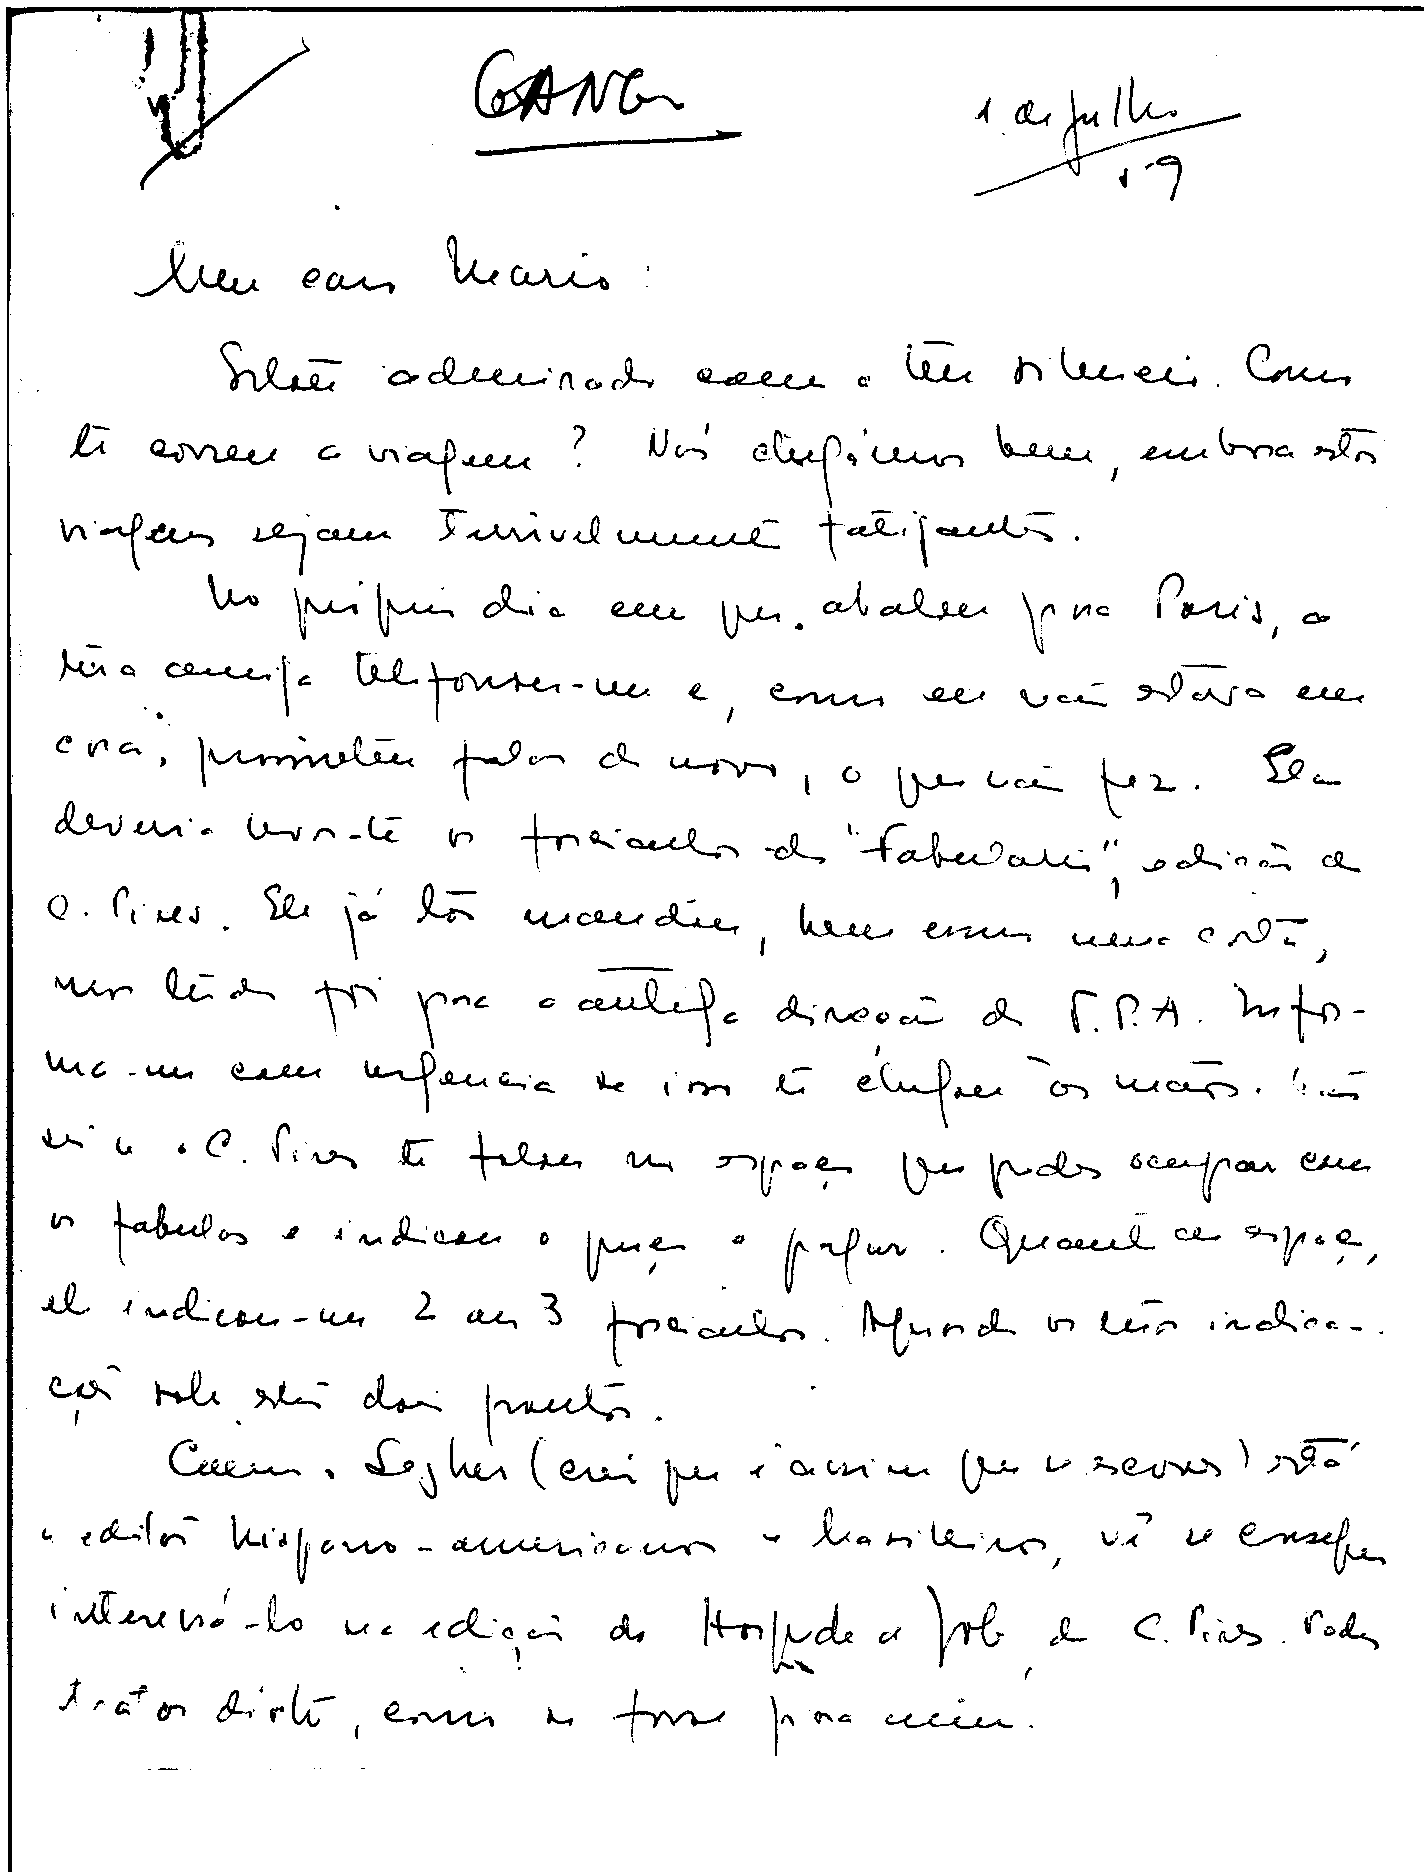 1 de julho
59
Meu caro Mario:
Estou admirado com o teu silencio. Como
te correu a viagem? Nós chegámos bem, embora estas
viagens sejam terrivelmente fatigantes.
No próprio dia em que abalou para Paris, a
tua amiga telefonou-me e, como eu não estava em
casa, prometeu falar de novo, o que não fez. Ela
deveria levar-te os fasciculos do "Fabulario", edição de
C. Pires. Ele já tos mandou, bem como uma carta,
mas tudo foi para a antiga direcção da P.P.A. Infor-
ma-me com urgencia se isso te chegou ás mãos. Não
sei se o C. Pires te falou no espaço que podes ocupar com
as fabulas e indicou o preço a pagar. Quanto ao espaço,
ele indicou-me 2 ou 3 fasciculos. Aguardo as tuas indica-
ções sobre estes dois pontos.
Como o Seghers (creio que é assim que se escreve) está
a editar hispano-americanos e brasileiros, vê se consegues
interessá-lo na edição do Hospede de Job, do C. Pires. Podes
tratar disto, como se fosse para mim.